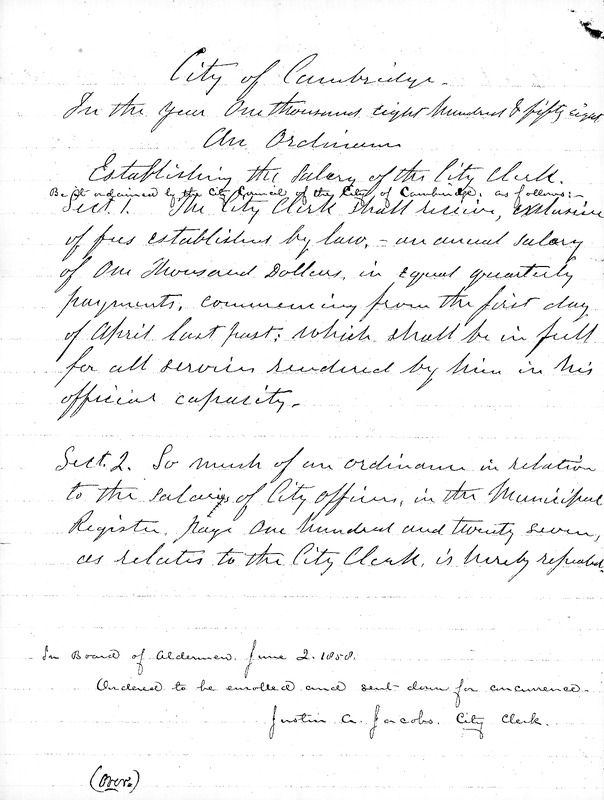 City of Cambridge.
In the year One thousand eight hundred & fifty eight
An Ordinance
Establishing the Salary of the City Clerk.
Be it ordained by the City Council of the City of Cambridge, as follows:-
Sect. 1. The City Clerk shall receive, exclusive
of fees established by law, - an annual salary
of One Thousand Dollars, in equal quarterly
payments, commencing from the first day
of April last past; which shall be in full
for all services rendered by him in his
official capacity.
Sect. 2. So much of an ordinance in relation
to the salaries of City officers, in the Municipal
Register, page One hundred and twenty seven,
as relates to the City Clerk, is hereby repealed.
In Board of Aldermen. June 2. 1858.
Ordered to be enrolled and sent down for concurrence.
Justin A. Jacobs. City Clerk.
(Over.)